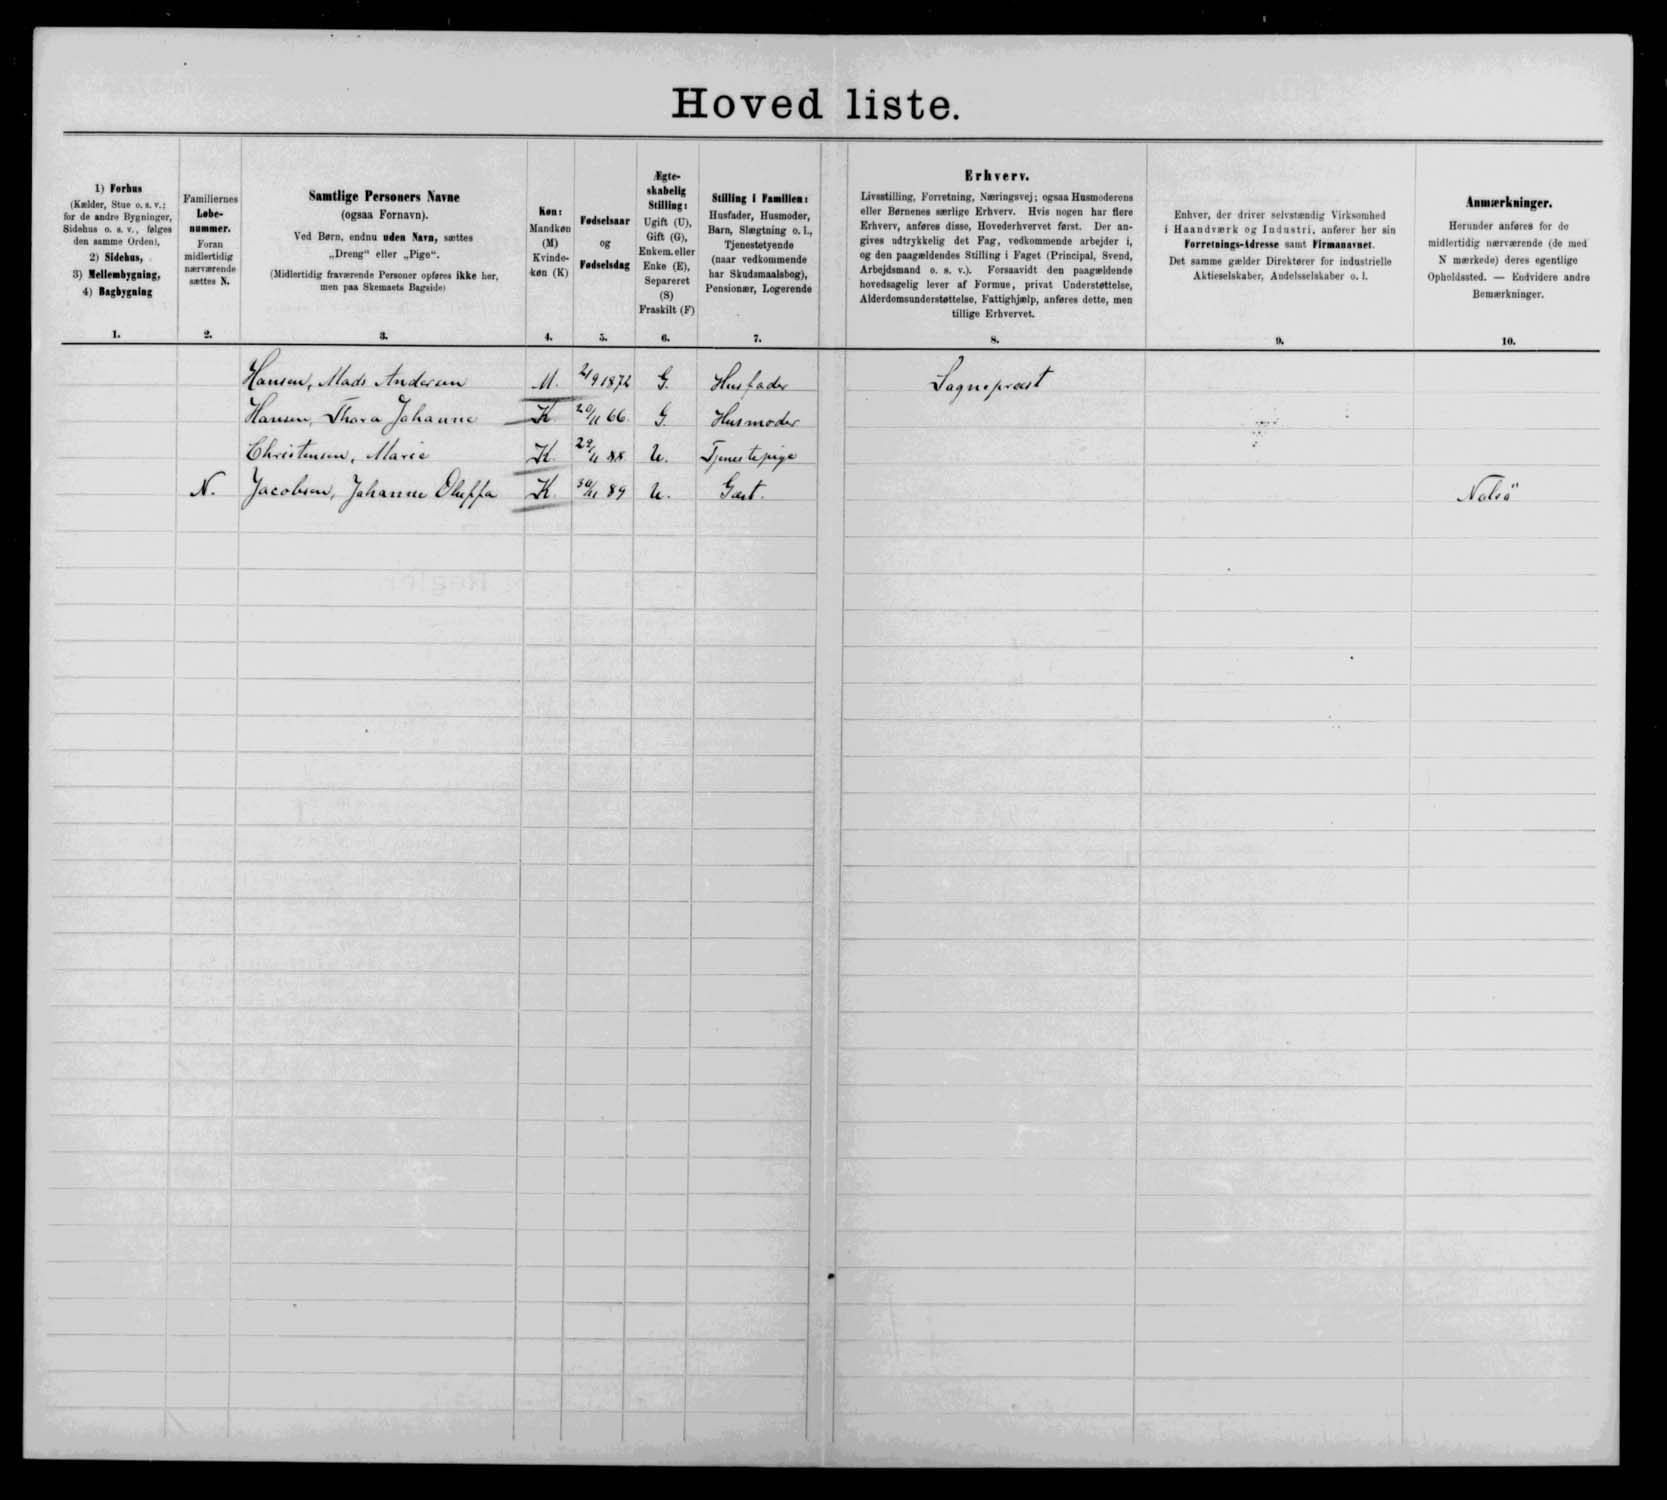 Hoved liste.
1) Forhus
(Kælder, Stue o. s. v.;
for de andre Bygninger,
Sidehus o. s. v., følges
den samme Orden),
2) Sidehus,
3) Mellembygning,
4) Bagbygning
1.
Familiernes
Løbe-
nummer.
Foran
midlertidig
nærværende
sættes N.
2.
Samtlige Personers Navne
(ogsaa Fornavn).
Ved Børn, endnu uden Navn, sættes
„Dreng“ eller „Pige“.
(Midlertidig fraværende Personer opføres ikke her,
men paa Skemaets Bagside)
3.
Køn:
Mandkøn
(M)
Kvinde-
køn (K)
4.
Fødselsaar
og
Fødselsdag
5.
Ægte-
skabelig
Stilling:
Ugift (U),
Gift (G),
Enkem. eller
Enke (E),
Separeret
(S)
Fraskilt (F)
6.
Stilling i Familien:
Husfader, Husmoder,
Barn, Slægtning o. l.,
Tjenestetyende
(naar vedkommende
har Skudsmaalsbog),
Pensionær, Logerende
7.
Erhverv.
Livsstilling, Forretning, Næringsvej; ogsaa Husmoderens
eller Børnenes særlige Erhverv. Hvis nogen har flere
Erhverv, anføres disse, Hovederhvervet først. Der an-
gives udtrykkelig det Fag, vedkommende arbejder i,
og den paagældendes Stilling i Faget (Principal, Svend,
Arbejdsmand o. s. v.). Forsaavidt den paagældende
hovedsagelig lever af Formue, privat Understøttelse,
Alderdomsunderstøttelse, Fattighjælp, anføres dette, men
tillige Erhvervet.
8.
Enhver, der driver selvstændig Virksomhed
i Haandværk og Industri, anfører her sin
Forretnings-Adresse samt Firmanavnet.
Det samme gælder Direktører for industrielle
Aktieselskaber, Andelsselskaber o. l.
9.
Anmærkninger.
Herunder anføres for de
midlertidig nærværende (de med
N mærkede) deres egentlige
Opholdssted. — Endvidere andre
Bemærkninger.
10.
Hansen, Mads Andersen M. 21/9 1872 G. Husfader Sognepræst
Hansen, Thora Johanne K 20/11 66 G. Husmoder
Christensen, Marie K. 29/11 88 U. Tjenestepige
N. Jacobsen, Johanne Oluffa K. 30/11 89 U. Gæst. Nolsö